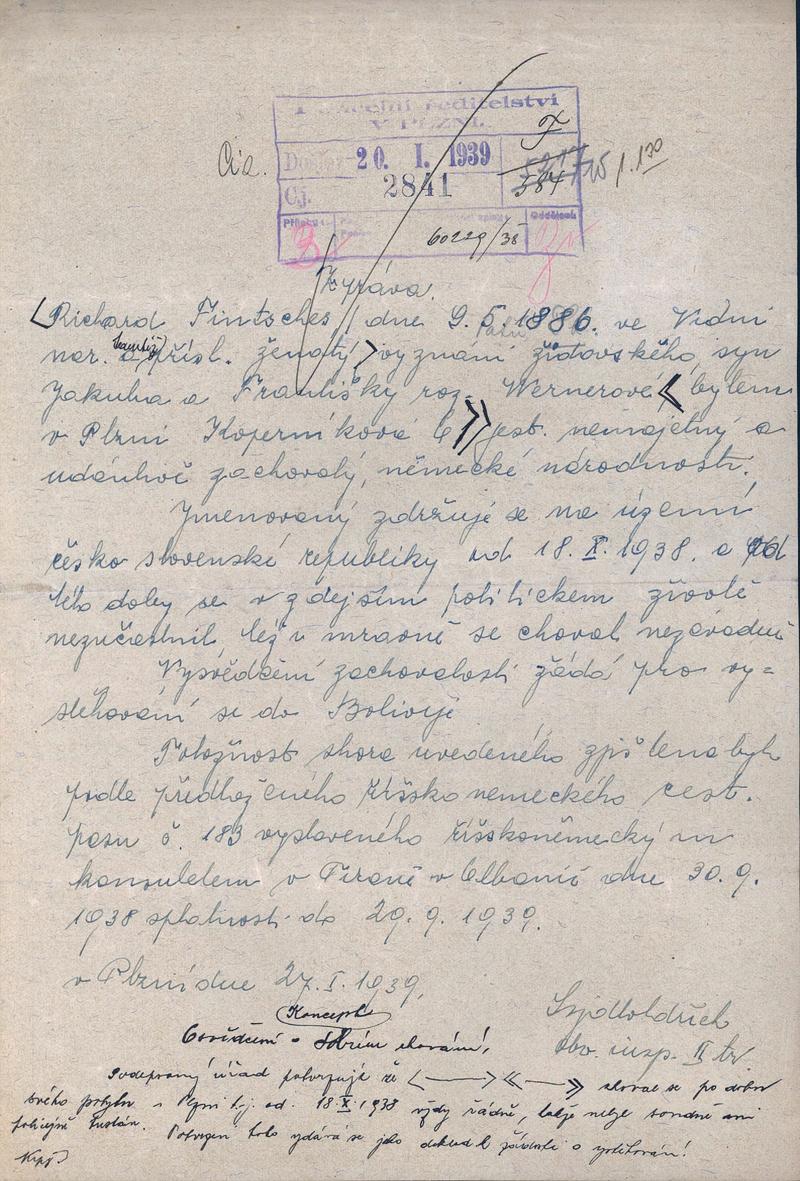 Policejní ředitelství
V PLZNI.
20. I. 1939
Čj. 2841
384
60229/38
Přílohy
Oddělení
Zpráva.
Richard Fintsches / dne 9. 5. 1886. ve Vídni
nar. a přísl. ženatý, vyznání židovského, syn
Jakuba a Františky roz. Wernerové bytem
v Plzni Koperníkova 6 jest. nemajetný a
udánlivě zachovalý, německé národnosti.
Jmenovaný zdržuje se na území
česko slovenské republiky od 18. X. 1938. a od
této doby se v zdejším politickém životě
nezúčastnil, též i mravně se choval nezávadně
Vysvědčení zachovalosti žádá pro vy=
stěhování se do Bolivije
Totožnost shora uvedeného zjištena byla
podle předloženého říšsko nemeckého cest.
pasu č. 183 vystaveného říšskoněmeckým
konsuletem v Tiraně v Albanii dne 30. 9.
1938 splatnosti do 29. 9. 1939.
v Plzni dne 27. I. 1939.
Koncept
Osvědčení o dobrém chování.
obv. insp. II tř.
Podepsaný úřad potvrzuje že choval se po dobu
svého pobytu v Plzni t.j. od. 18. X. 1938 vždy řádně, takže nebyl soudně ani
policejně trestán. Potvrzení toto vydává se jako doklad k žádosti o vystěhování!